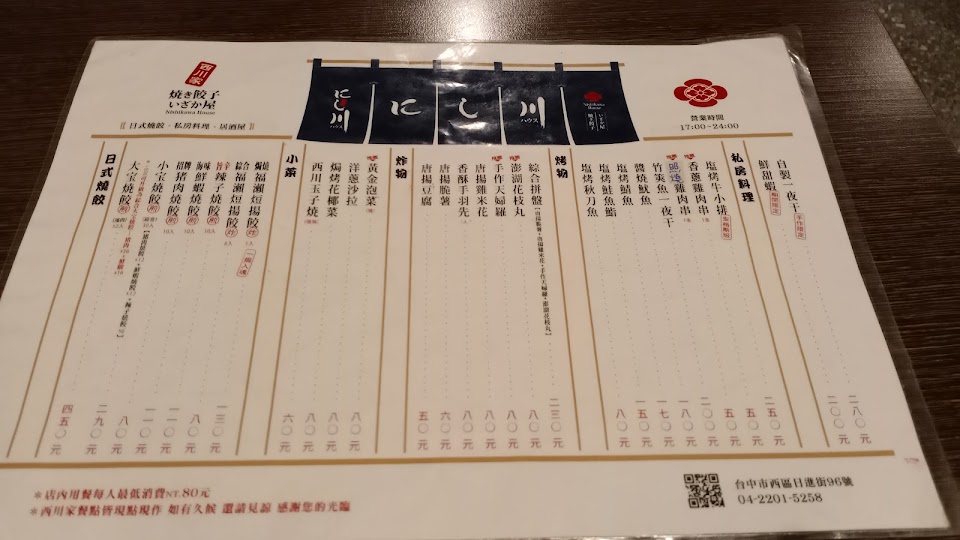 西川家
焼き餃子
いざか屋
Nishikawa House
日式燒餃・私房料理・居酒屋
にし川
ハウス
にし川
ハウス
Nishikawa House
營業時間
17:00~24:00
私房料理
自製一夜干
手作現定
二八〇元
鮮甜蝦
二〇〇元
烤物
塩烤牛小排
二五〇元
香蔥雞肉串
五〇元
雞肉串
五〇元
竹筴魚一夜干
二〇〇元
醬燒魷魚
一八〇元
塩烤鯖魚
一五〇元
塩烤鮭魚鮨
塩烤秋刀魚
八〇元
炸物
綜合拼盤
二三〇元
澎湖花枝丸
八〇元
手作天婦羅
八〇元
唐揚雞米花
八〇元
香酥手羽先
八〇元
唐揚脆薯
六〇元
唐揚豆腐
五〇元
小菜
黃金泡菜
八〇元
洋蔥沙拉
八〇元
焗烤花椰菜
八〇元
西川玉子燒
六〇元
日式燒餃
綜福瀨烜揚餃
一個入魂
辣子燒餃
10入
一三〇元
鮮蝦燒餃
10入
八〇元
招牌豬肉燒餃
10入
小宝燒餃
大宝燒餃
二九〇元
四五〇元
＊店內用餐每人最低消費NT.80元
＊西川家餐點皆現點現作 如有久候 還請見諒 感謝您的光臨
台中市西區日進街96號
04-2201-5258